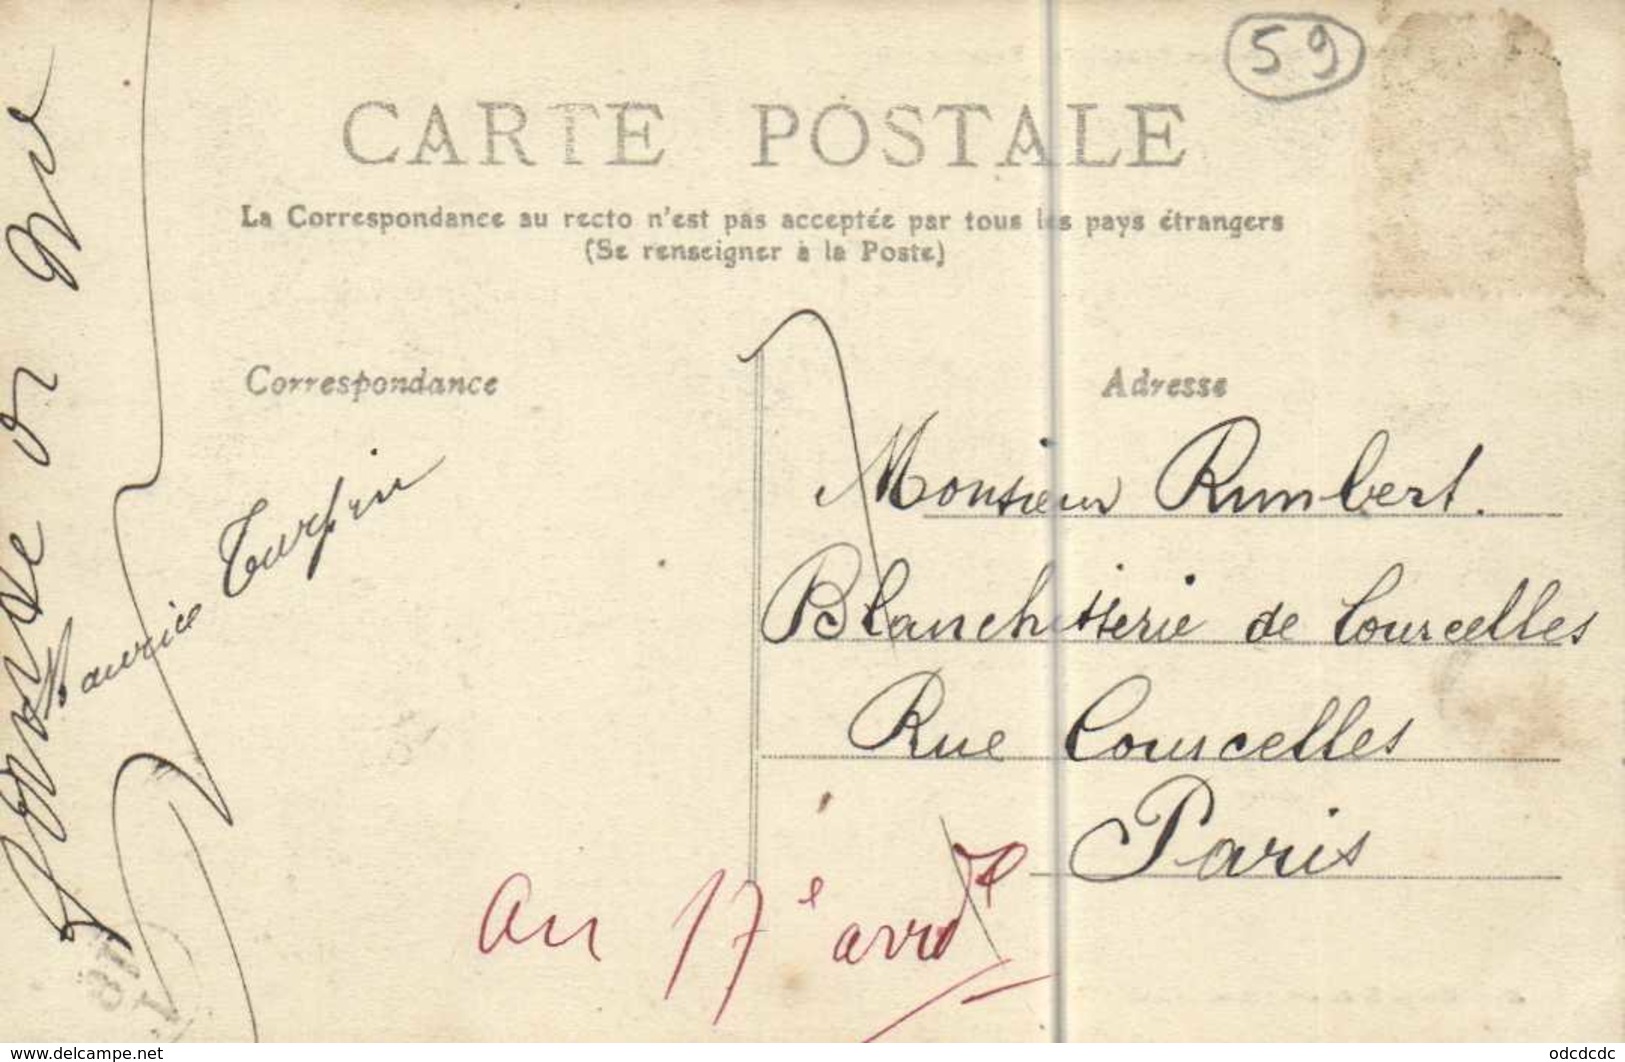 59
CARTE POSTALE
La Correspondance au recto n'est pas acceptée par tous les pays étrangers
(Se renseigner à la Poste)
Correspondance
Adresse
Maurice Turpin
Monsieur Rumbert.
Blanchisserie de Courcelles
Rue Courcelles
Paris
au 17e arrdt
www.delcampe.net
odcdcdc